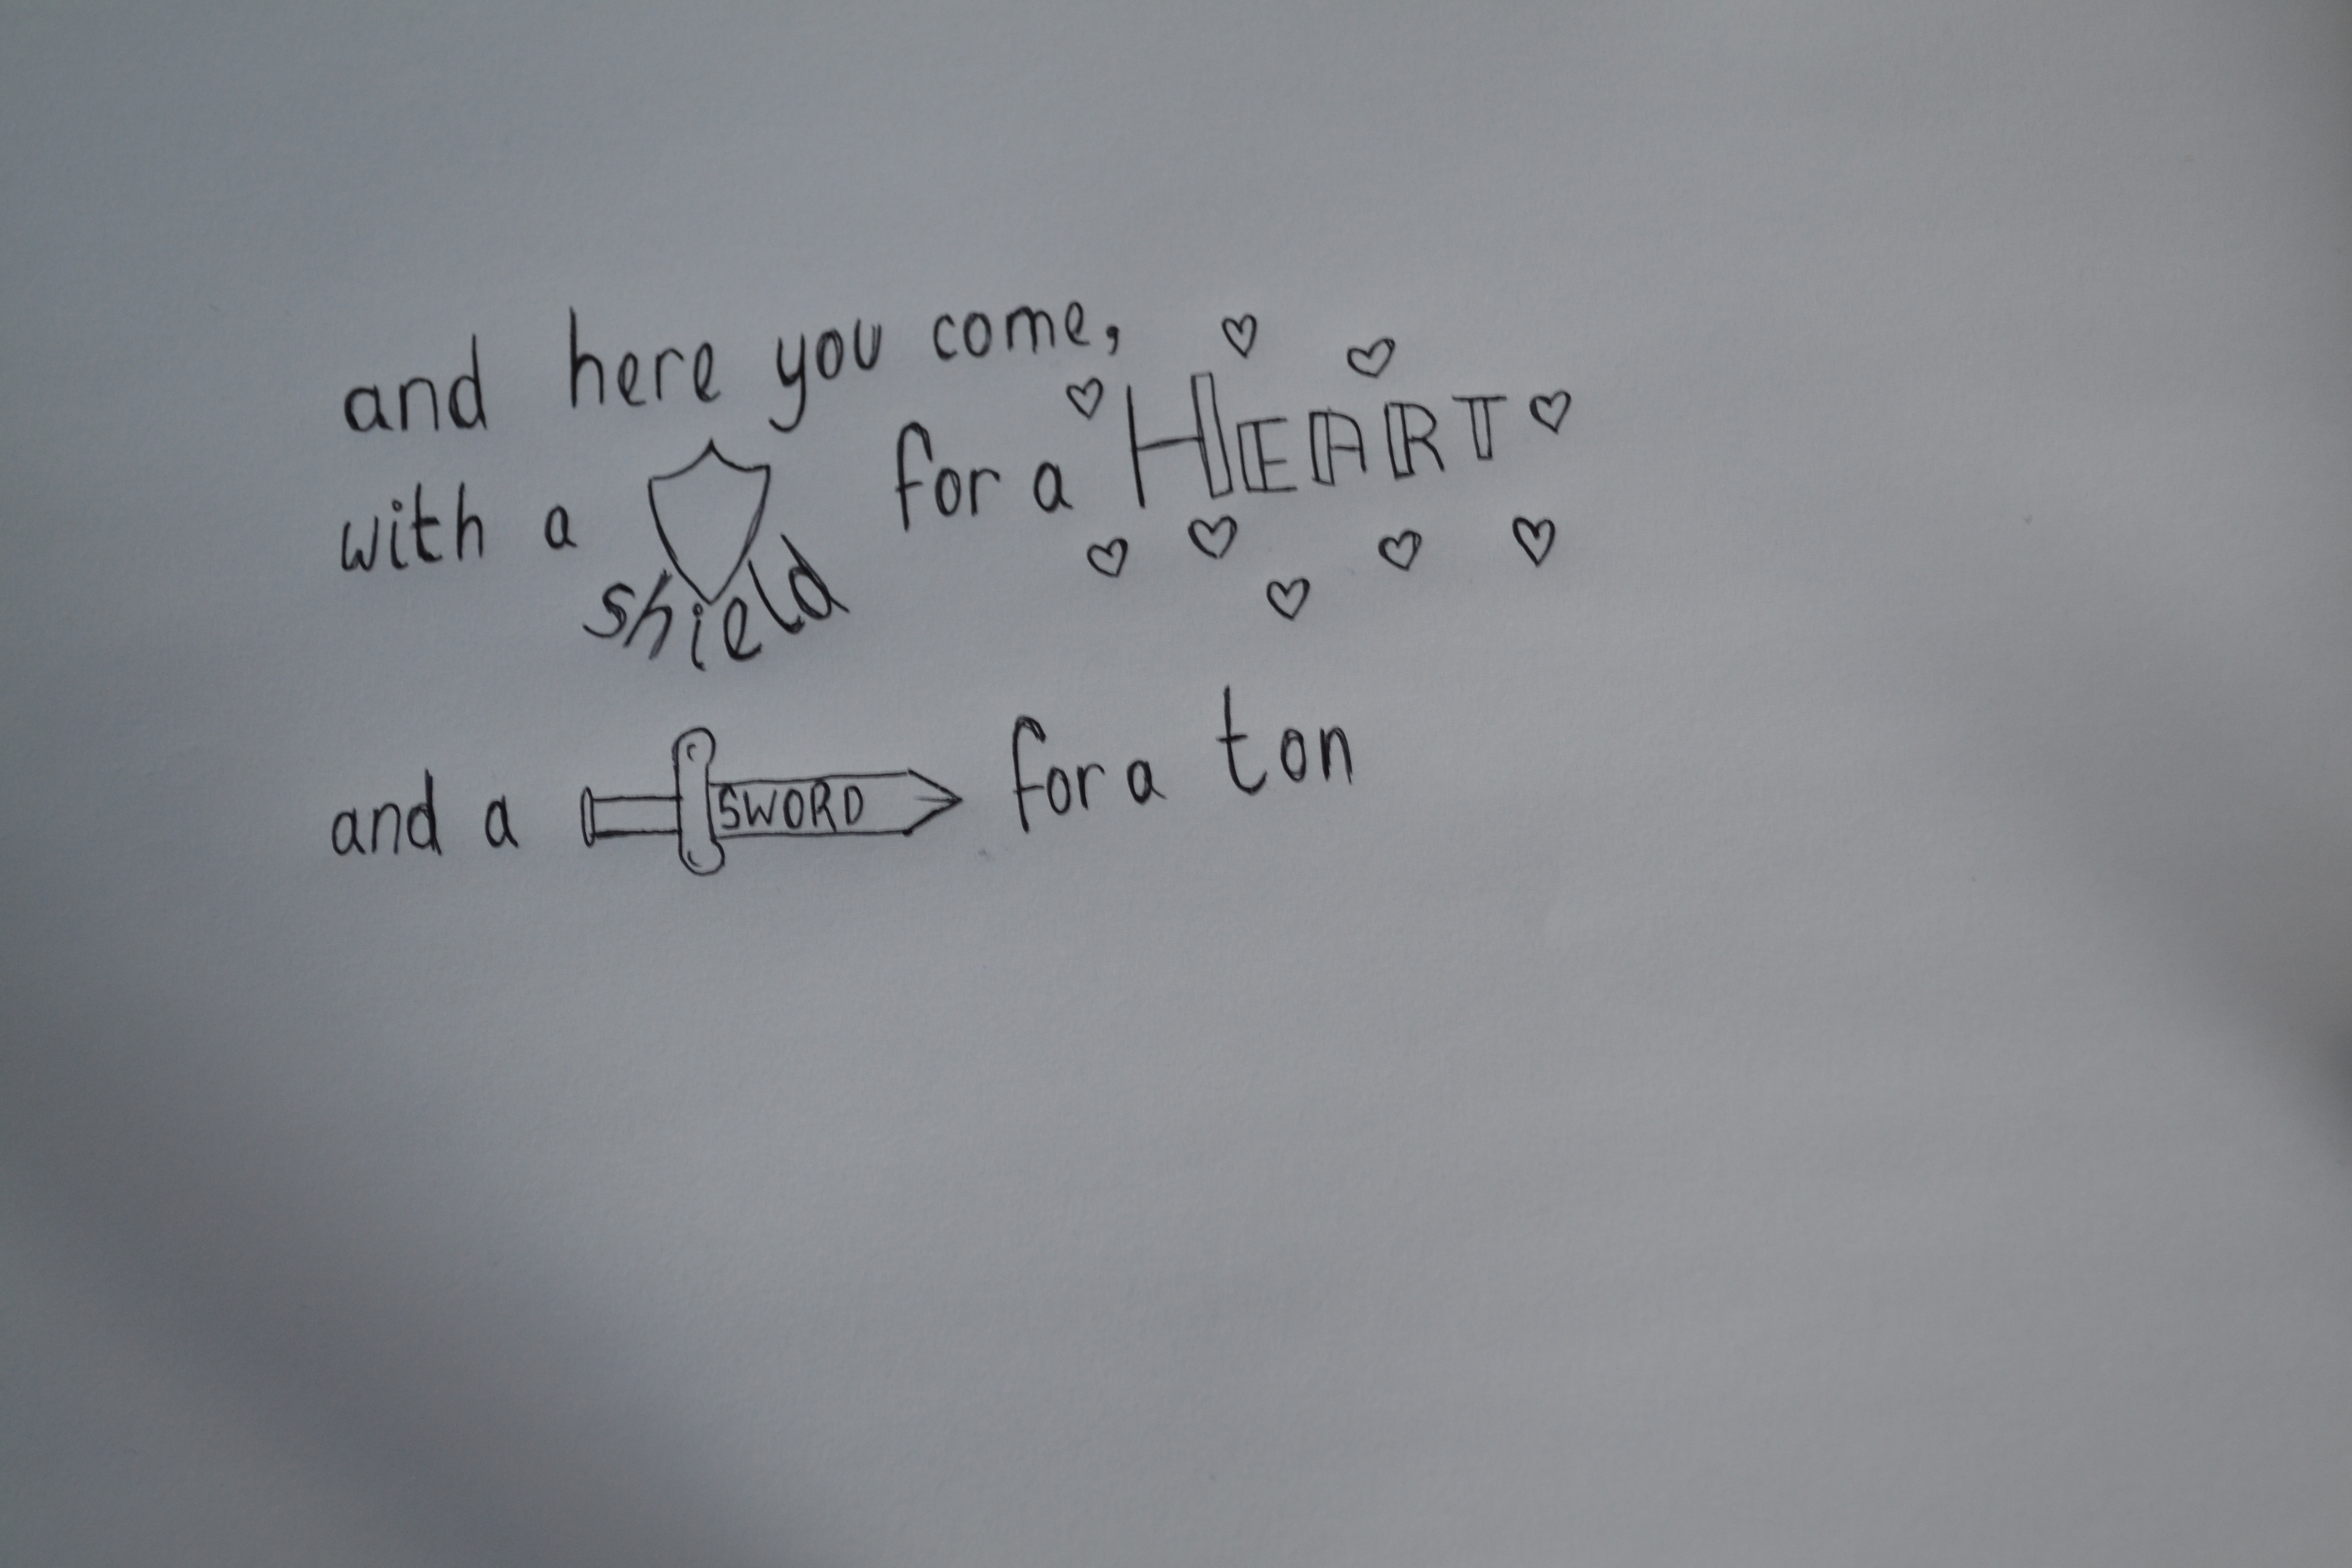 and here you come,
with a shield for a HEART
and a SWORD for a ton